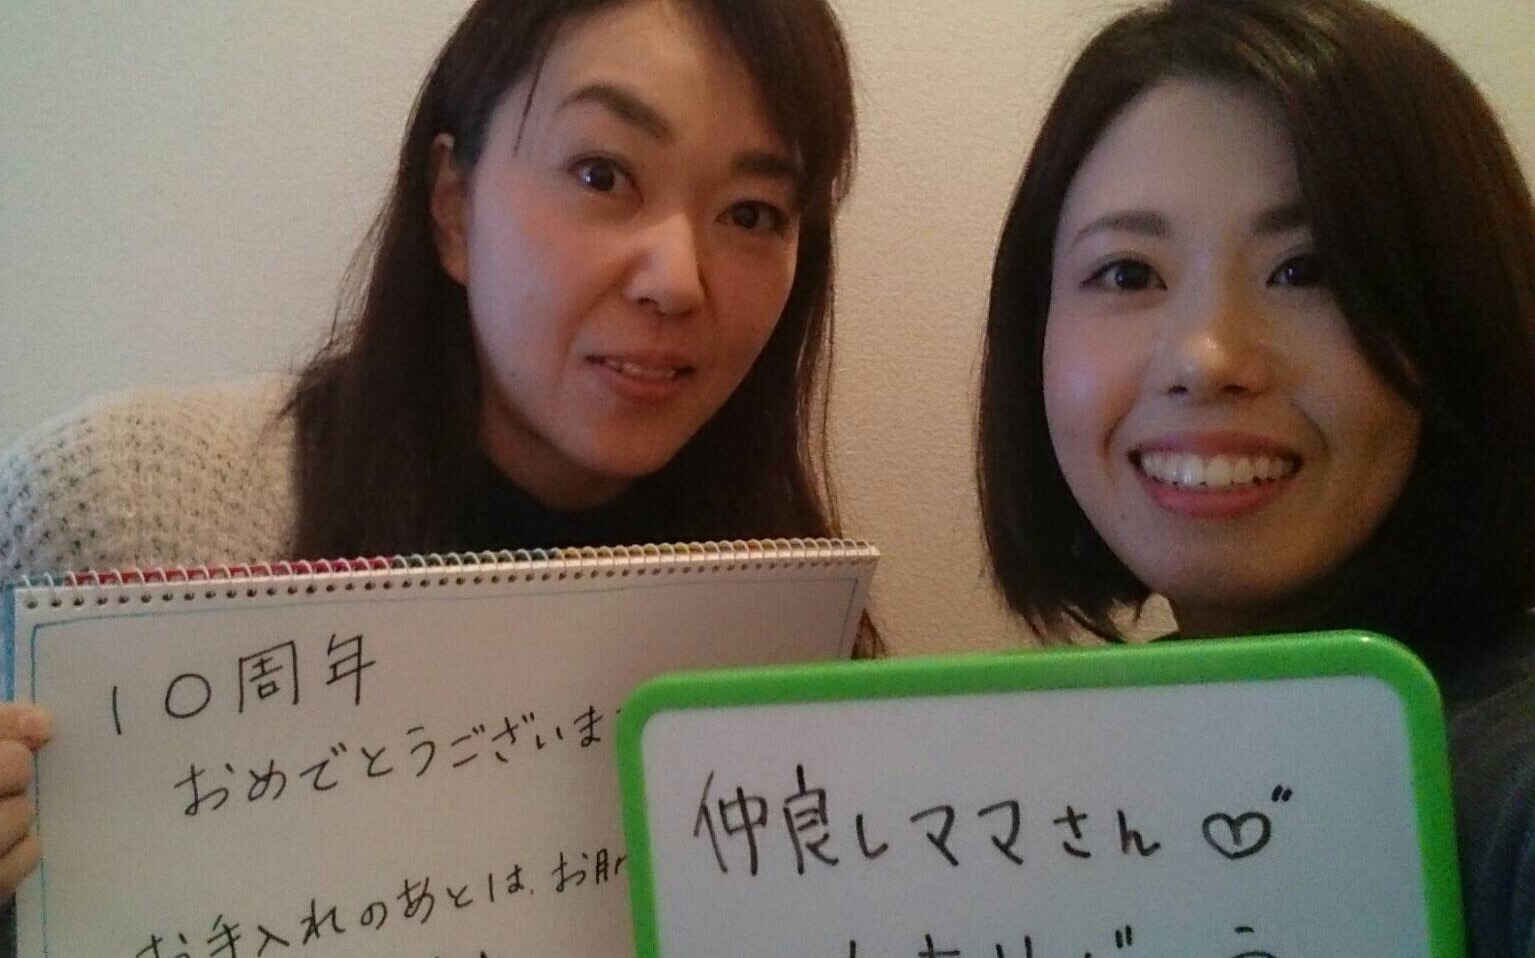 10周年
おめでとうございま
お手入れのあとは、お肌
仲良しママさん♡"